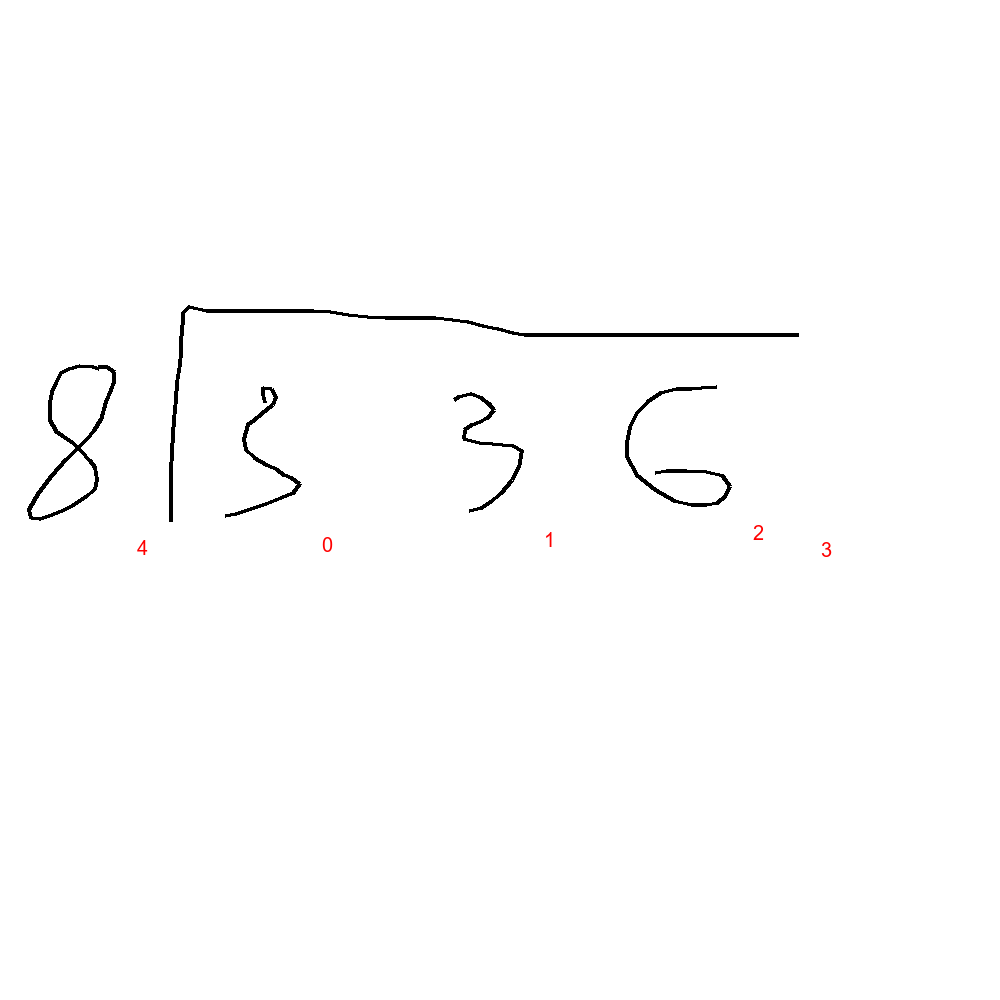 8 3 3 6
4 0 1 2 3